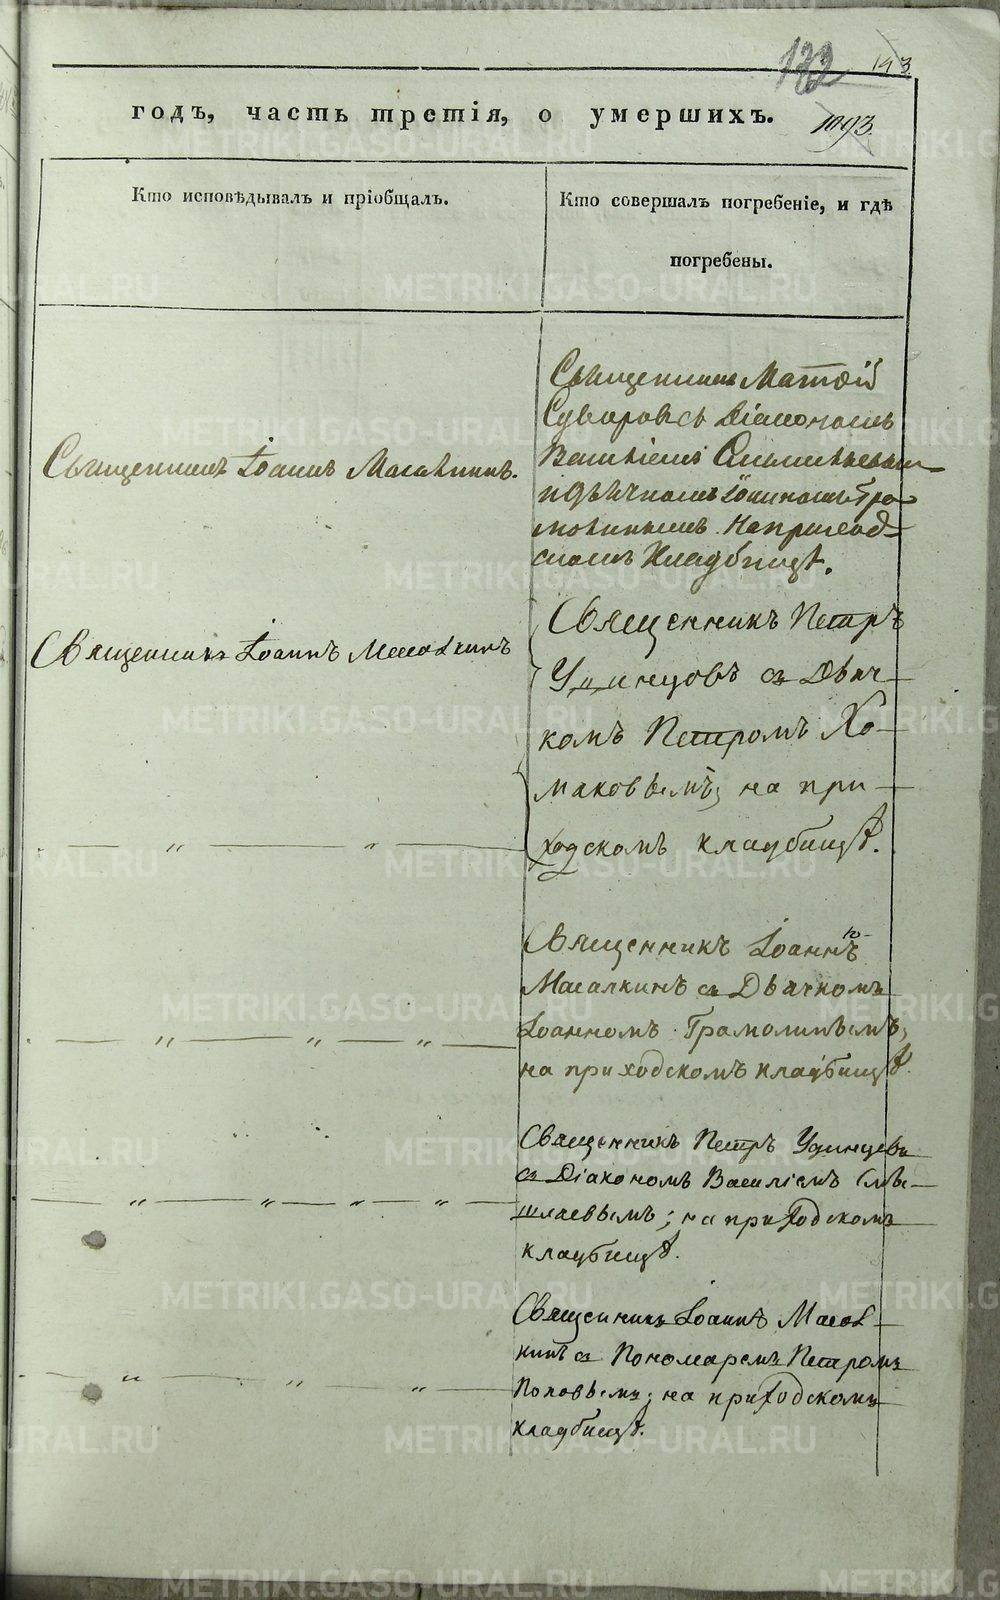 годъ, часть третія, о умершихъ.
1093.
Кто исповѣдывалъ и пріобщалъ.
Кто совершалъ погребеніе, и гдѣ
погребены.
Священникъ Іоаннъ Масалкинъ.
Священникъ
Суворовъ съ Діакономъ
Василіемъ
и дьячкомъ Іоанномъ Гра
молинымъ. На приход-
скомъ Кладбищѣ.
Священникъ Іоаннъ Масалкинъ
Священникъ Петръ
Удинцовъ съ Дьяч-
комъ Петромъ Хо-
маковымъ; на при-
ходскомъ кладбищѣ.
Священникъ Іоаннъ
Масалкинъ съ Дьячкомъ
Іоанномъ Грамолинымъ,
на приходскомъ кладбищѣ.
Священникъ Петръ Удинцевъ
съ Діакономъ Василіемъ
на приходскомъ
кладбищѣ.
Священникъ Іоаннъ Масал-
кинъ съ Пономаремъ Петромъ
Поповымъ; на приходскомъ
кладбищѣ.
METRIKI.GASO-URAL.RU